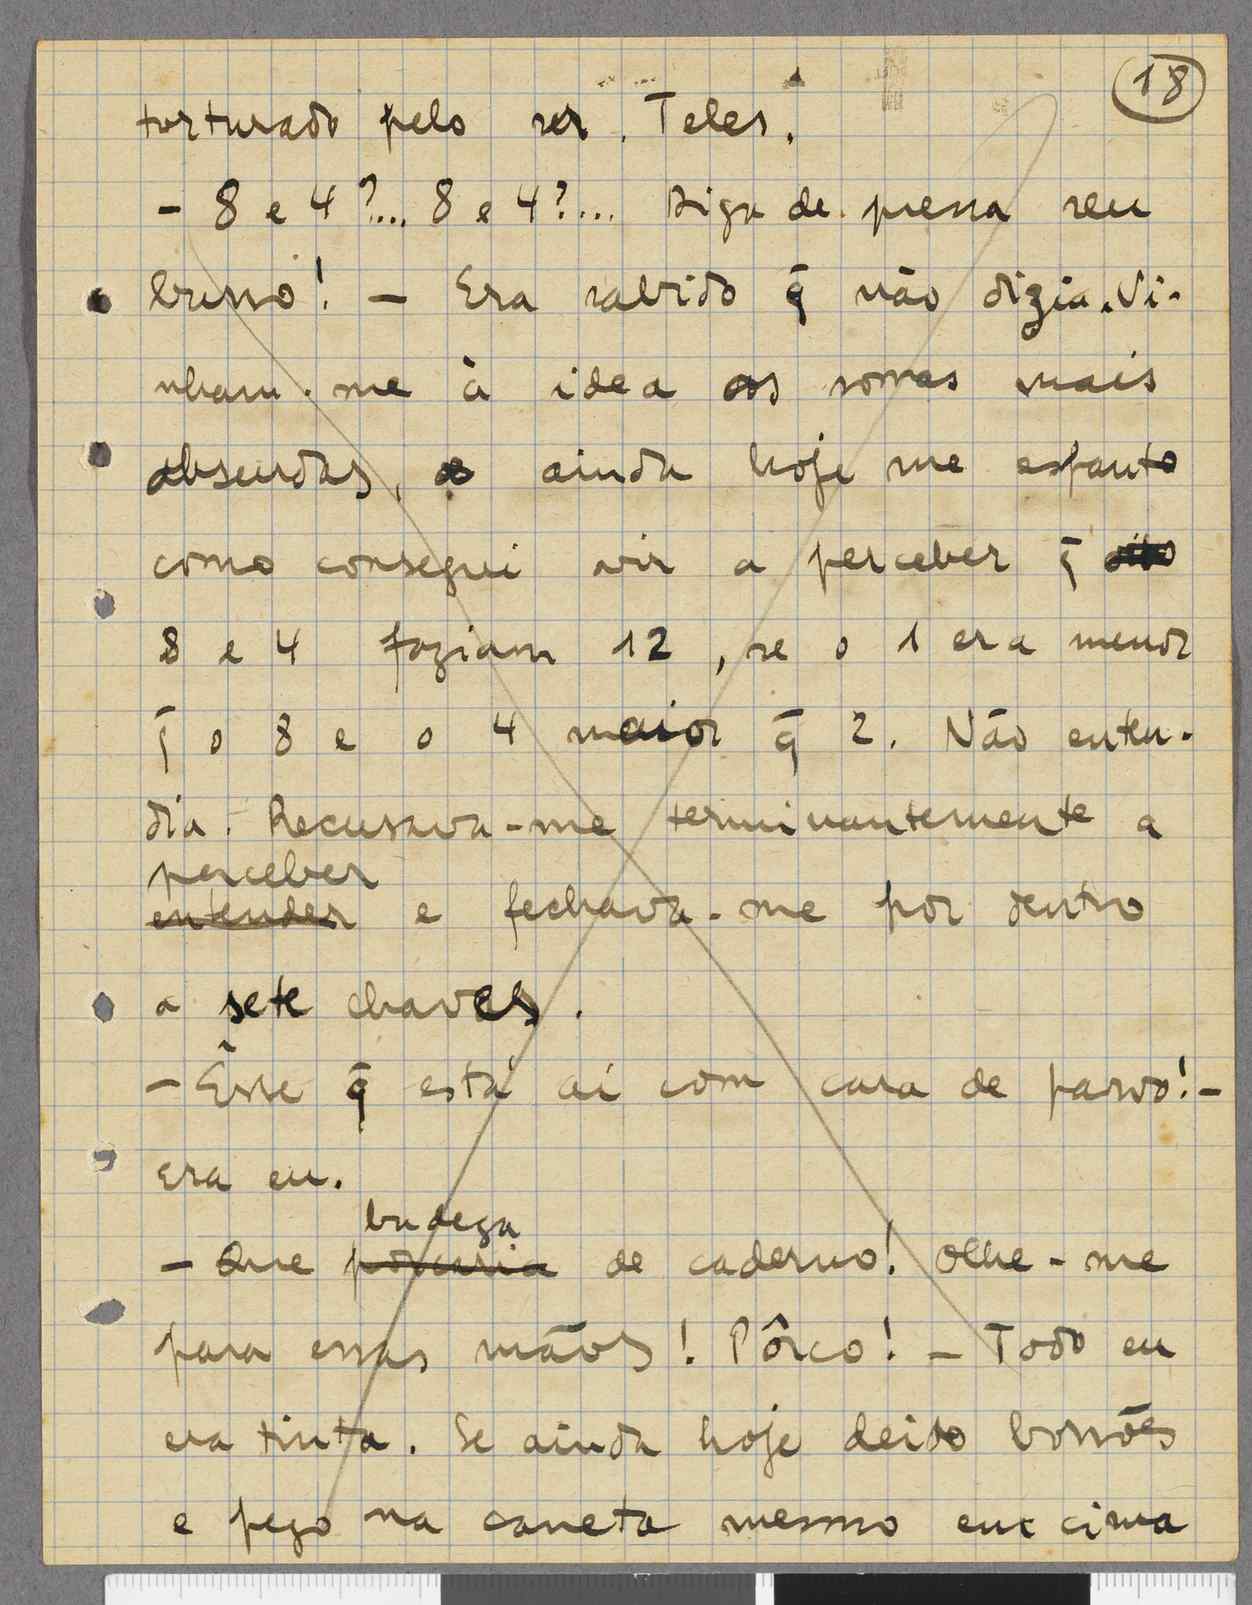 18
torturado pelo sr. Teles.
- 8 e 4?... 8 e 4?... Diga de pressa seu
burro! - Era sabido q̄ não dizia. Vi-
nham-me à idea as somas mais
absurdas, e ainda hoje me espanto
como consegui vir a perceber q̄
8 e 4 faziam 12, se o 1 era menor
q̄ o 8 e o 4 maior q̄ 2. Não enten-
dia. Recusava-me terminantemente a
perceber
entender e fechava-me por dentro
a sete chaves.
- Êsse q̄ está aí com cara de parvo! -
era eu.
budega
- Que porcaria de caderno! Olhe-me
para essas mãos! Pôrco! - Todo eu
era tinta. Se ainda hoje deito borrões
e pego na caneta mesmo em cima